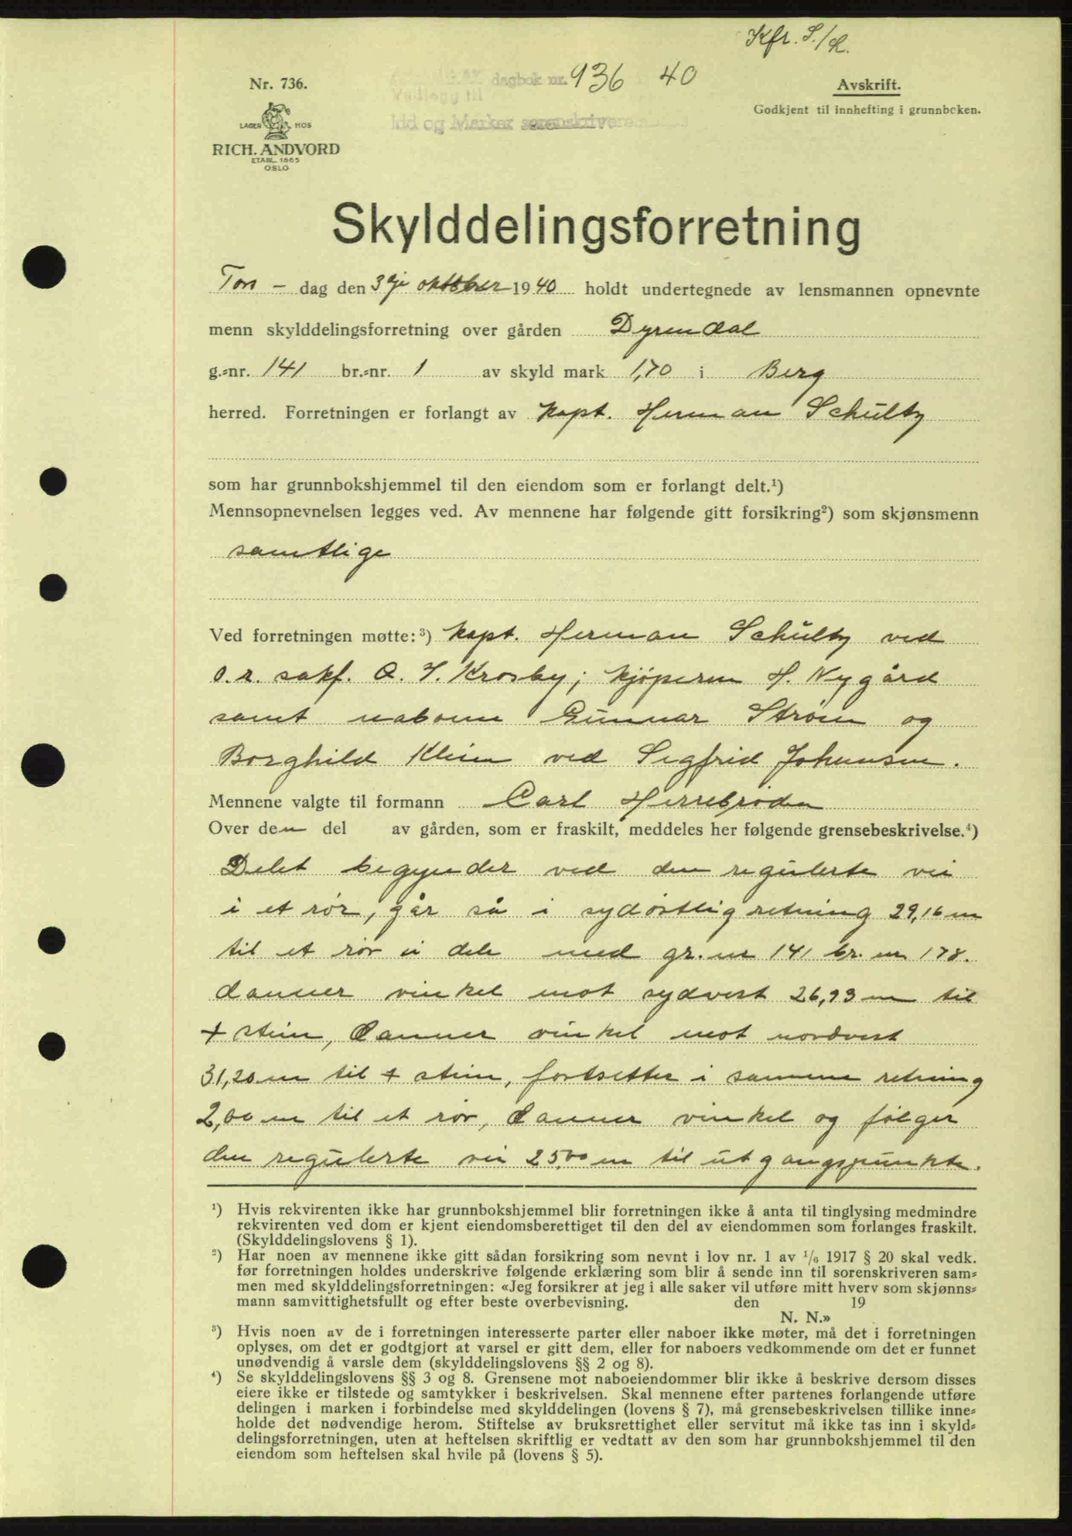 Kfr. S./H.
dagbok nr. 936 40
Vedlegg til
Idd og Marker sorenskrivere
Nr. 736.
LAGER HOS
RICH. ANDVORD
ETABL. 1865
OSLO
Avskrift.
Godkjent til innhefting i grunnboken.
Skylddelingsforretning
Tors - dag den 3dje oktober 1940 holdt undertegnede av lensmannen opnevnte
menn skylddelingsforretning over gården Dyrendal
g.=nr. 141 br.=nr. 1 av skyld mark 1,70 i Berg
herred. Forretningen er forlangt av kapt. Herman Schultz
som har grunnbokshjemmel til den eiendom som er forlangt delt.¹)
Mennsopnevnelsen legges ved. Av mennene har følgende gitt forsikring²) som skjønsmenn
samtlige
Ved forretningen møtte:³) kapt. Herman Schultz ved
o.r. sakf. O. H. Krosby; kjøperen H. Nygård
samt naboene Gunnar Strøm og
Borghild Klein ved Segfrid Johansen.
Mennene valgte til formann Carl Herrebrøden
Over den del av gården, som er fraskilt, meddeles her følgende grensebeskrivelse.⁴)
Delet begynder ved den regulerte vei
i et rør, går så i sydøstlig retning 29,16 m
til et rør i dele med gr. nr 141 br. nr 178.
danner vinkel mot sydvest 26,93 m til
+ stein, danner vinkel mot nordvest
31,20 m til + stein, fortsetter i samme retning
2,00 m til et rør, danner vinkel og følger
den regulerte vei 25,00 m til utgangspunkte.
¹) Hvis rekvirenten ikke har grunnbokshjemmel blir forretningen ikke å anta til tinglysing medmindre
rekvirenten ved dom er kjent eiendomsberettiget til den del av eiendommen som forlanges fraskilt.
(Skylddelingslovens § 1).
²) Har noen av mennene ikke gitt sådan forsikring som nevnt i lov nr. 1 av 1/6 1917 § 20 skal vedk.
før forretningen holdes underskrive følgende erklæring som blir å sende inn til sorenskriveren sam=
men med skylddelingsforretningen: «Jeg forsikrer at jeg i alle saker vil utføre mitt hverv som skjønns=
mann samvittighetsfullt og efter beste overbevisning. den 19
N. N.»
³) Hvis noen av de i forretningen interesserte parter eller naboer ikke møter, må det i forretningen
oplyses, om det er godtgjort at varsel er gitt dem, eller for naboers vedkommende om det er funnet
unødvendig å varsle dem (skylddelingslovens §§ 2 og 8).
⁴) Se skylddelingslovens §§ 3 og 8. Grensene mot naboeiendommer blir ikke å beskrive dersom disses
eiere ikke er tilstede og samtykker i beskrivelsen. Skal mennene efter partenes forlangende utføre
delingen i marken i forbindelse med skylddelingen (lovens § 7), må grensebeskrivelsen tillike inne=
holde det nødvendige herom. Stiftelse av bruksrettighet eller servitut må ikke tas inn i skyld=
delingsforretningen, uten at heftelsen skriftlig er vedtatt av den som har grunnbokshjemmel til den
eiendom som heftelsen skal hvile på (lovens § 5).